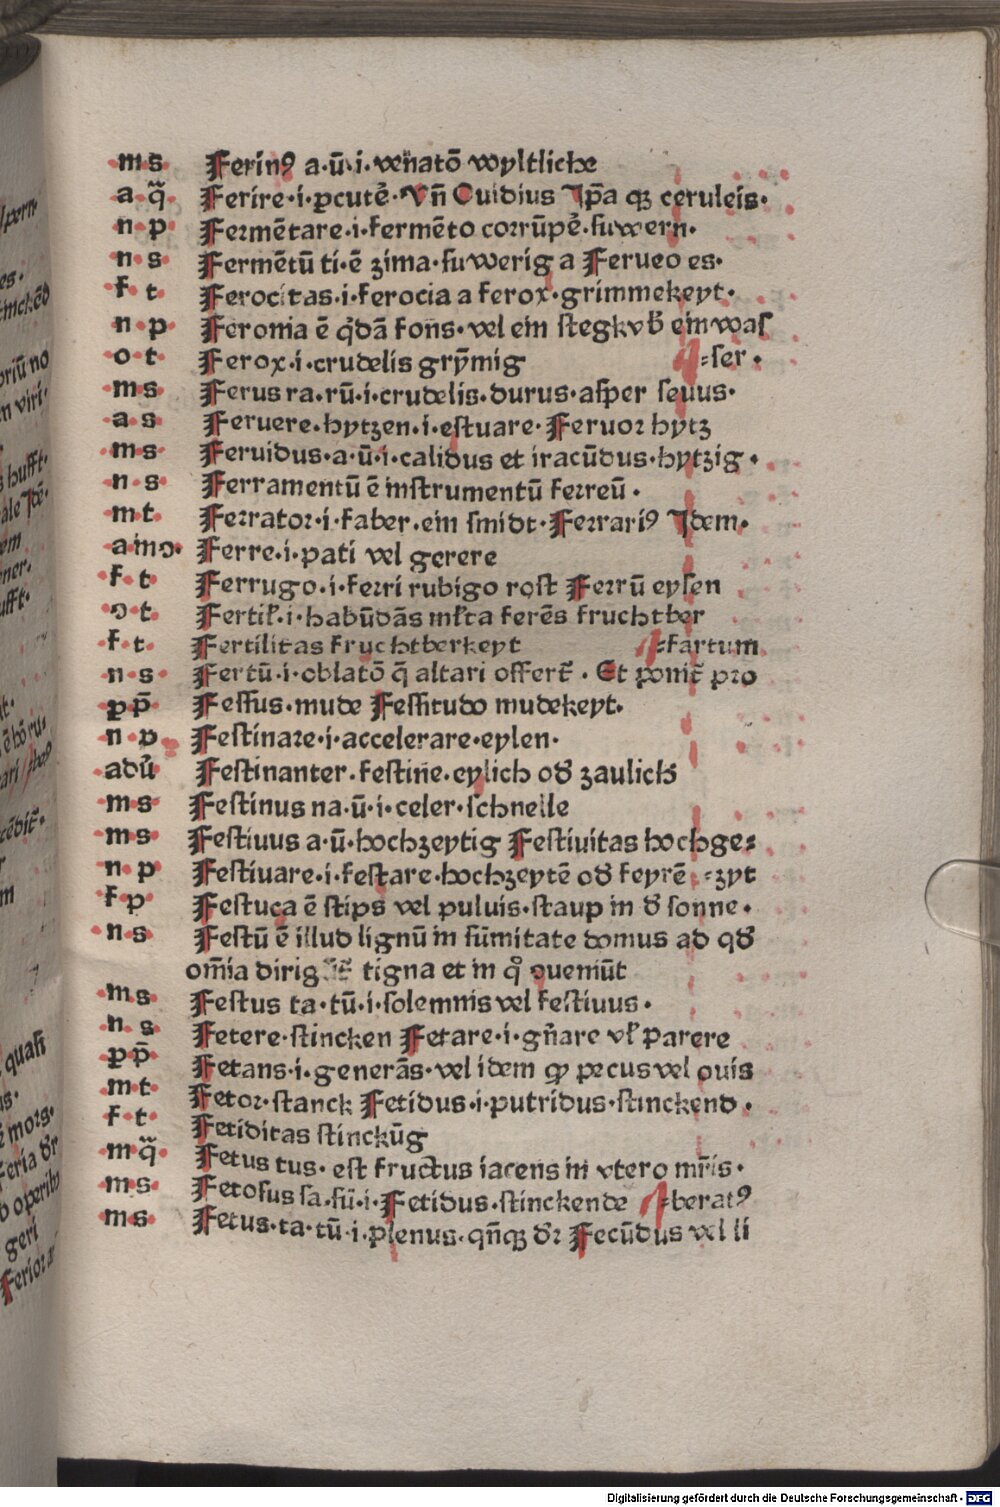 m s Ferinꝰ a·ū·i·venatō wyltliche
a q̄ Ferire·i·ꝑcutē·Vñ Ouidius Jp̄a qꝫ ceruleis·
n p Fermētare·i·fermēto corrūpē·suwern·
n s Fermētū ti·ē zima·suwerig a Ferueo es·
f t Ferocitas·i·ferocia a ferox·grimmekeyt·
n p Feronia ē q̇dā fons·vel ein stegk vḃ ein was
o t Ferox·i·crudelis grȳmig ⸗ser·
m s Ferus ra·rū·i·crudelis·durus·asper seuus·
a s Feruere·hytzen·i·estuare·Feruor hytz
m s Feruidus·a·ū·i·calidus et iracūdus·hytzig·
n s Ferramentū ē instrumentū ferreū·
m t Ferrator·i·faber·ein smidt·Ferrariꝰ Jdem·
a mo· Ferre·i·pati vel gerere
f t Ferrugo·i·ferri rubigo rost Ferrū eysen
o t Fertil̄·i·habūdās ml̄ta ferēs fruchtber
f t Fertilitas fruchtberkeyt ⸗fartum
n s Fertū·i·oblatō q̄ altari offert᷑·Et ponit᷑ pro
ꝑ p̄ Fessus·mude Fessitudo mudekeyt·
n p Festinare·i·accelerare·eylen·
adū Festinanter·festine·eylich od᷑ zaulich
m s Festinus na·ū·i·celer·schnelle
m s Festiuus a·ū·hochzeytig Festiuitas hochge⸗
n p Festiuare·i·festare·hochzeytē od᷑ feyrē ⸗zyt
f p Festuca ē stips vel puluis·staup in d᷑ sonne·
n s Festū ē illud lignū in sūmitate domus ad qd᷑
om̄ia dirigūt᷑ tigna et in qͦ ꝯueniūt
m s Festus ta·tū·i·solemnis vel festiuus·
n s Fetere·stincken Fetare·i·gn̄are vl̄ parere
ꝑ p̄ Fetans·i·generās·vel idem qͦ pecus vel ouis
m t Fetor·stanck Fetidus·i·putridus·stinckend·
f t Fetiditas stinckūg
m q̄ Fetus tus·est fructus iacens in vtero mr̄is·
m s Fetosus sa·sū·i·Fetidus·stinckende ⸗beratꝰ
m s Fetus·ta·tū·i·plenus·qn̄qꝫ dr̄ Fecūdus vel li
Digitalisierung gefördert durch die Deutsche Forschungsgemeinschaft · DFG